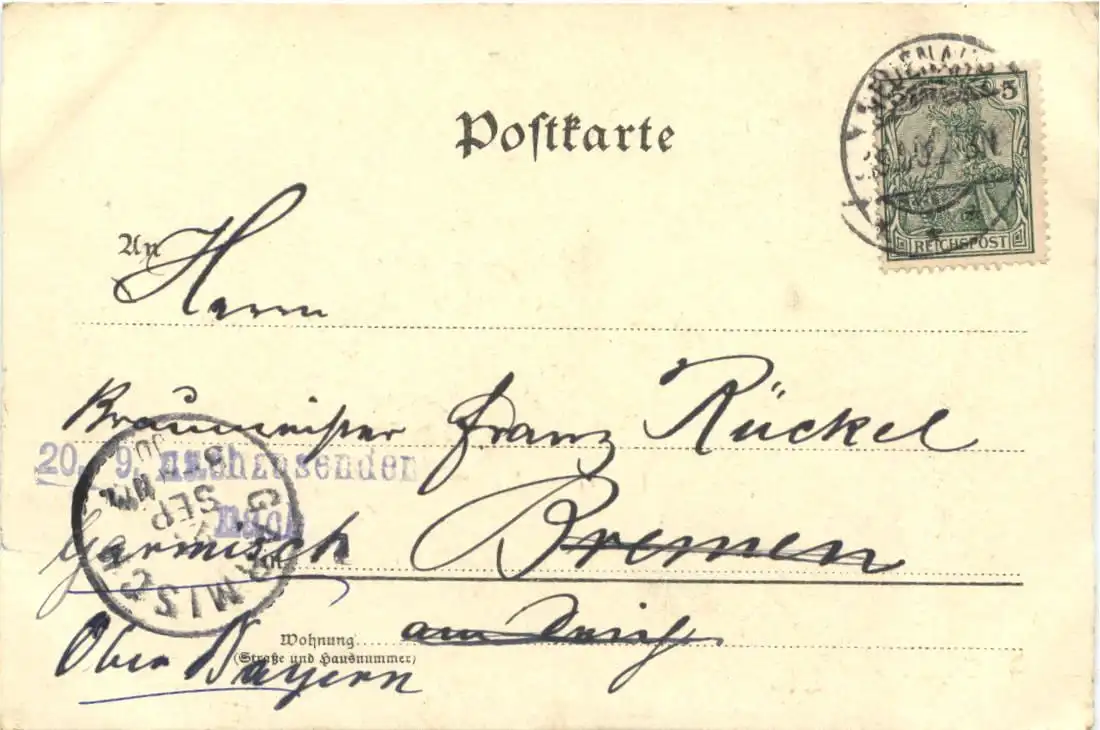 Postkarte
5
REICHSPOST
An Herrn
Braumeister Franz Rückel
20. 9. nachzusenden
nach
Garmisch
in Bremen
SEP
Wohnung am Deich
(Straße und Hausnummer)
Ober Bayern